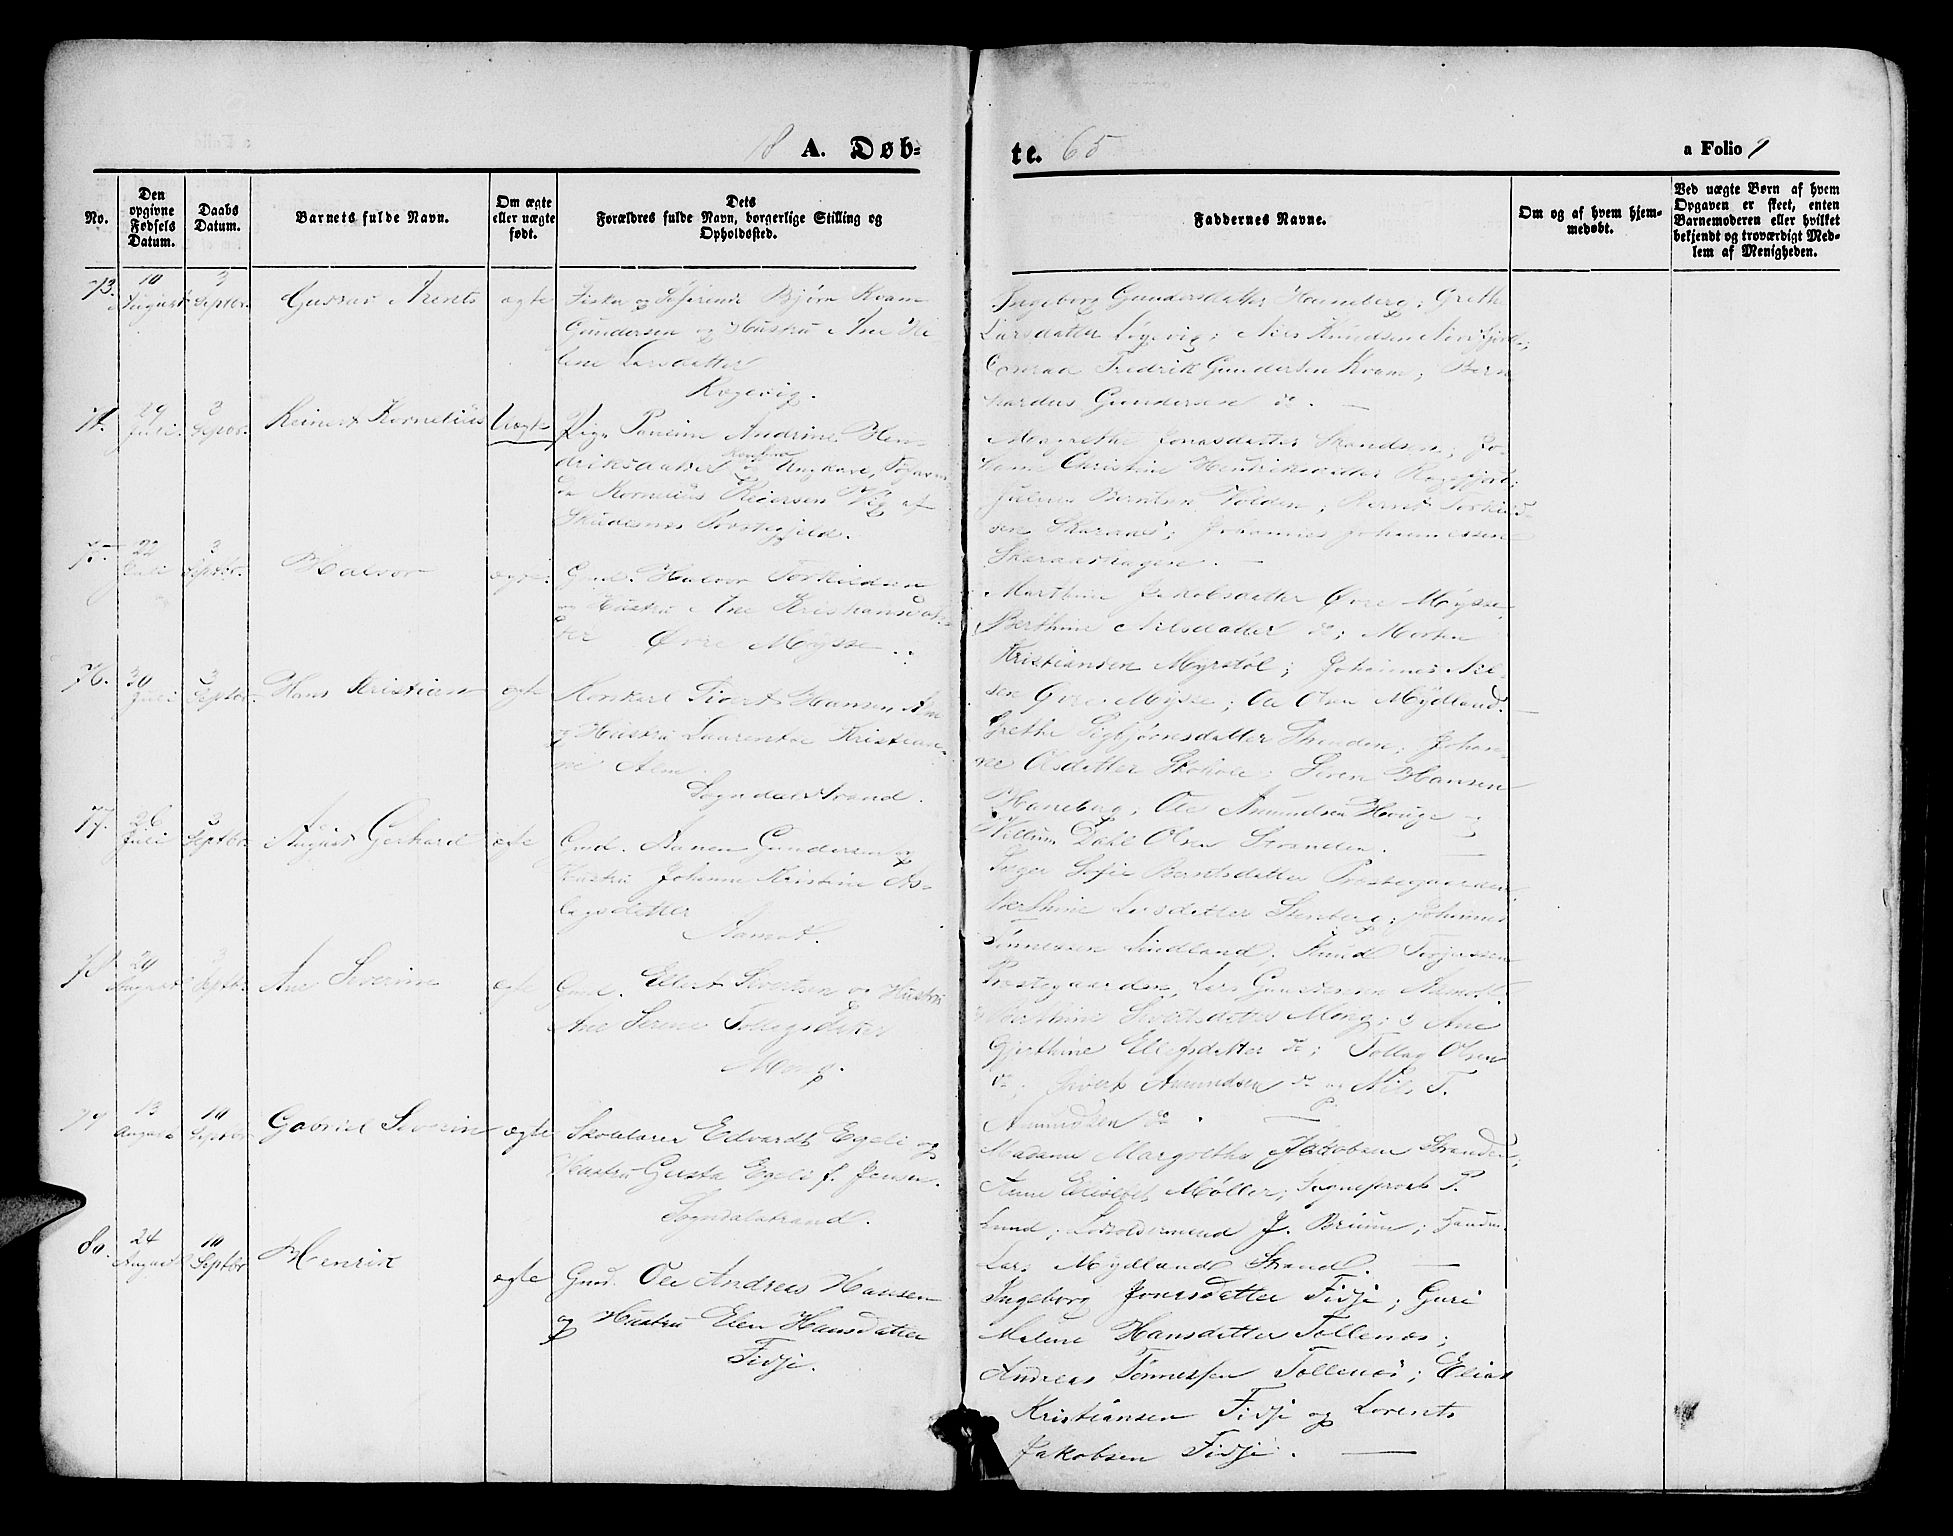 18 A. Døb-
te. 65
a Folio 9
No.
Den opgivne Fødsels Datum.
Daabs Datum.
Barnets fulde Navn.
Om ægte eller uægte født.
Dets Forældres fulde Navn, borgerlige Stilling og Opholdssted.
Faddernes Navne.
Om og af hvem hjemmedøbt.
Ved uægte Børn af hvem Opgaven er skeet, enten Barnemoderen eller hvilket bekjendt og troværdigt Medlem af Menigheden.
73.
10 August
3 Septbr.
Gustav Arents
ægte
Fisker og Bjørn Kvam
Gundersen og Hustru Ane He
lene Larsdatter
Rægevig.
Ingeborg Gundersdatter Haneberg; Grethe
Larsdatter Løgevig; Nils Knudsen
Conrad Fredrik Gundersen Kvam; Bern
hardus Gundersen do. —
74.
29 Juli
3 Septbr.
Reinert Kornelius
Uægte
Pige Andrine Hen-
driksdatter og Ungkarl,
Kornelius Reiersen Vig af
Skudesnes Præstegjeld.
Magrethe Jonasdatter Skandsen; Jo-
hanne Christine Henriksdatter Rægefjord;
Julius Berntsen Volden; Bernt Torkild-
sen Skaraas; Johannes Johannessen
—
75.
22 Juli
3 Septbr.
Halvor
ægte.
Gmd. Halvor Torkildsen
og Hustru Ane Kristiansdat-
ter Øvre Mysse.
Marthine Jakobsdatter Øvre Mysse,
Berthine Nilsdatter do; Morten
Kristiansen Myrstøl; Johannes Niel-
sen Øvre Mysse; Ole Olsen Mydland. —
76.
30 Juli
3 Septbr.
Hans Kristian
ægte
Sivert Hansen Alm
og Hustru Laurentse Kristian-
ne Alm.
Sogndalstrand.
Grethe Sigbjørnsdatter; Johan-
ne Olsdatter; Søren Hansen
Haneberg; Ole Amundsen Houge og
Villum Dahl Olsen Stranden. —
77.
26 Juli
3 Septbr.
August Gerhard
ægte
Gmd. Aanen Gundersen og
Hustru Johanne Kristine As-
lagsdetter
Aamot.
Inger Sofie Berntsdatter Præstegaarden,
Berthine Larsdatter Stenberg; Johannes
Tønnessen Lindland. Knud Terjessen
Præstegaarden, Lars Gundersen Aamot.
78.
29 August
3 Septbr.
Ane Severine
ægte
Gmd. Ellert Sivertsen og Hustru
Ane Serine Tollagsdatter
Mong.
Berthine Sivertsdatter Mong; Ane
Gjerthine Ellefsdatter do; Tollag Olsen
do, Sivert Amundsen do og Nils T.
Amundsen do. —
79
13 August
10 Septbr
Gabriel Severin
ægte
Skolelærer Edvardt Egeli og
Hustru Gusta Egeli f. Jensen.
Sogndalstrand.
Madame Margrethe Jakobsen Stranden;
Anne Elisebet Møller; Sogneprost P.
Lund; J. Bruun;
Lars Mydland Strand. —
80.
24 August
10 Septbr
Henrik
ægte
Gmd. Ole Andreas Hansen
og Hustru Elen Hansdatter
Fidje.
Ingeborg Jonasdatter Fidje; Guri
Malene Hansdatter Tollenæs;
Andreas Tønnessen Tollenæs; Elias
Kristiansen Fidje og Lorents
Jakobsen Fidje. —